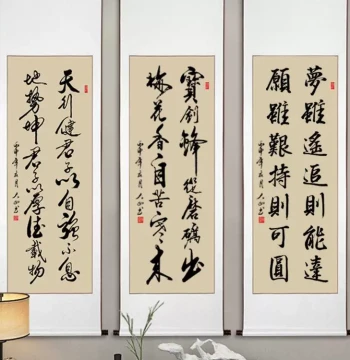 夢雖遙追則能達
願雖艱持則可圓
寶劍鋒從磨礪出
梅花香自苦寒來
天行健君子以自強不息
地勢坤君子以厚德載物